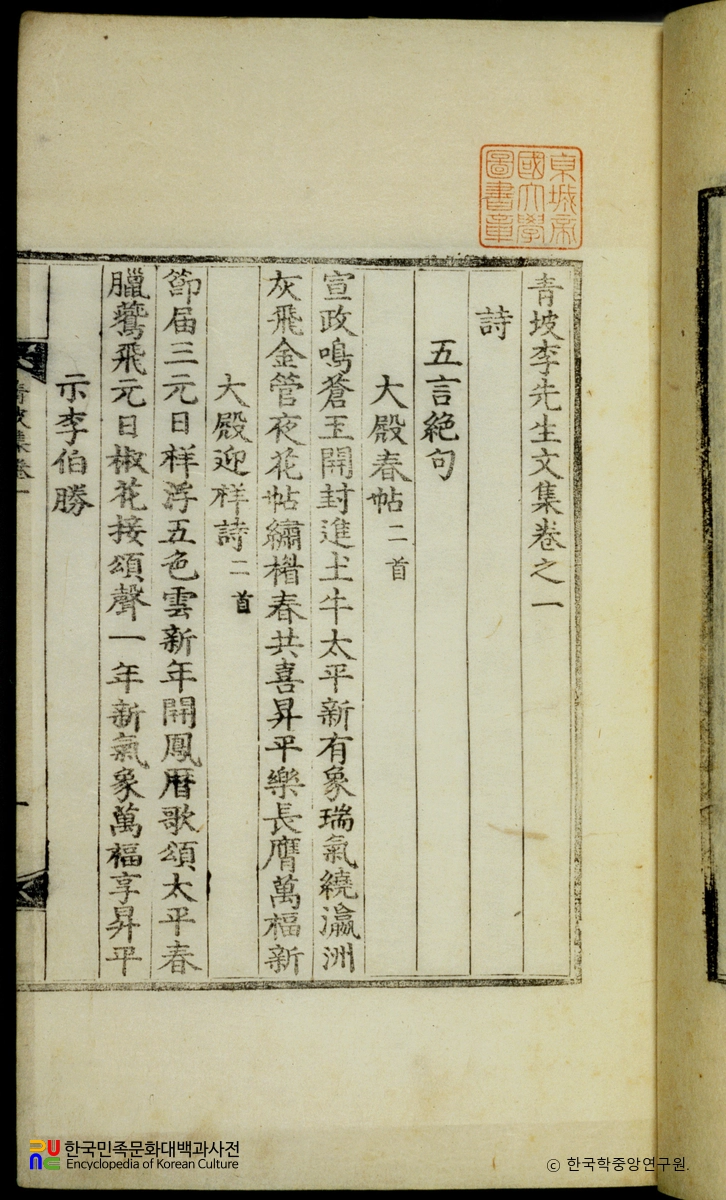 青坡李先生文集卷之一
詩
五言絕句
大殿春帖二首
宣政鳴蒼玉開封進土牛太平新有象瑞氣繞瀛洲
灰飛金管夜花帖繡楣春共喜昇平樂長膺萬福新
大殿迎祥詩二首
節届三元日祥浮五色雲新年開鳳曆歌頌太平春
臘鷰飛元日椒花接頌聲一年新氣象萬福享昇平
示李伯勝
青坡集卷一
京城帝
國大學
圖書章
한국민족문화대백과사전
Encyclopedia of Korean Culture
© 한국학중앙연구원.